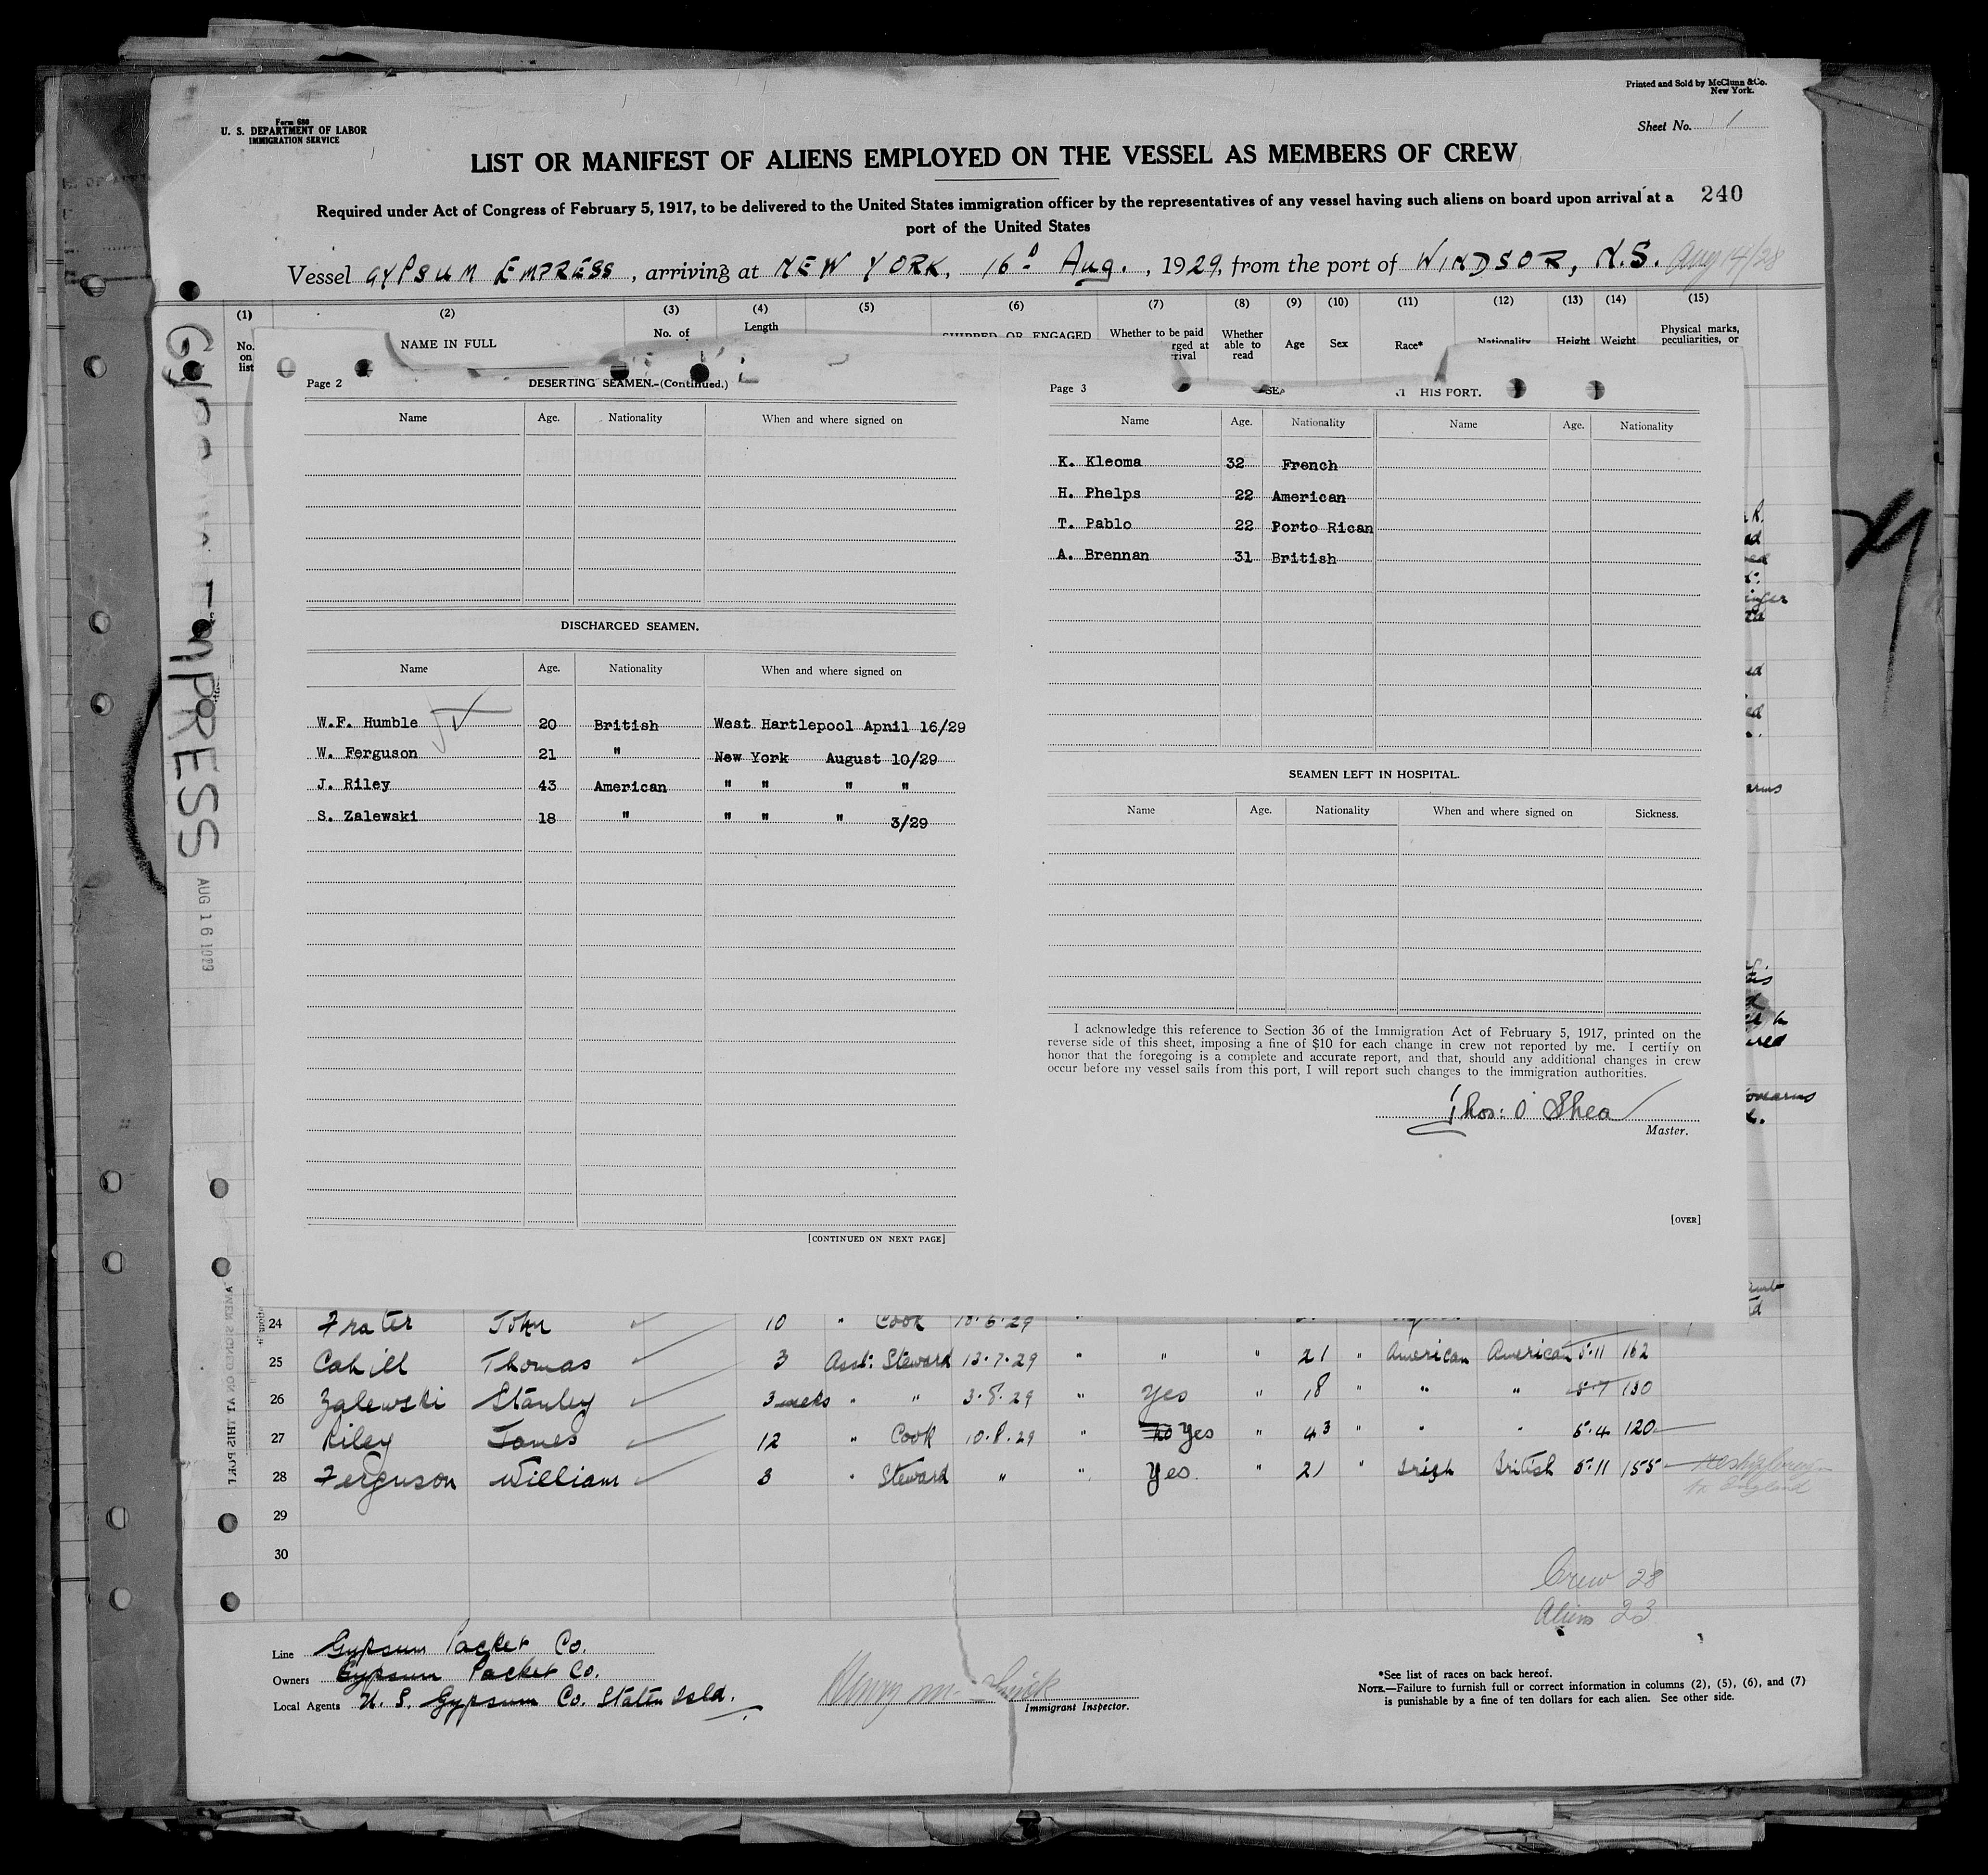 Printed and Sold by McClunn & Co.
New York.
Form 680
U. S. DEPARTMENT OF LABOR
IMMIGRATION SERVICE
Sheet No. 1
LIST OR MANIFEST OF ALIENS EMPLOYED ON THE VESSEL AS MEMBERS OF CREW
240
Required under Act of Congress of February 5, 1917, to be delivered to the United States immigration officer by the representatives of any vessel having such aliens on board upon arrival at a
port of the United States
Vessel GYPSUM EMPRESS, arriving at NEW YORK, 16 Aug., 1929, from the port of WINDSOR, N.S. Aug 14/28
(1) (2) (3) (4) (5) (6) (7) (8) (9) (10) (11) (12) (13) (14) (15)
No. on list NAME IN FULL No. of Length SHIPPED OR ENGAGED Whether to be paid Whether able to read Age Sex Race* Nationality Height Weight Physical marks, peculiarities, or
EMPRESS
AUG 16 1929
Page 2
DESERTING SEAMEN.-(Continued.)
Name Age. Nationality When and where signed on
DISCHARGED SEAMEN.
Name Age. Nationality When and where signed on
W.F. Humble 20 British West Hartlepool April 16/29
W. Ferguson 21 " New York August 10/29
J. Riley 43 American " " " "
S. Zalewski 18 " " " " 3/29
[CONTINUED ON NEXT PAGE]
Page 3
HIS PORT.
Name Age. Nationality Name Age. Nationality
K. Kleoma 32 French
H. Phelps 22 American
T. Pablo 22 Porto Rican
A. Brennan 31 British
SEAMEN LEFT IN HOSPITAL.
Name Age. Nationality When and where signed on Sickness.
I acknowledge this reference to Section 36 of the Immigration Act of February 5, 1917, printed on the
reverse side of this sheet, imposing a fine of $10 for each change in crew not reported by me. I certify on
honor that the foregoing is a complete and accurate report, and that, should any additional changes in crew
occur before my vessel sails from this port, I will report such changes to the immigration authorities.
Thos: O'Shea
Master.
[OVER]
24 Frater John 10 " Cook
25 Cahill Thomas 3 Asst: Steward 13.7.29 " " " 21 " American American 5.11 162
26 Zalewski Stanley 3 weeks " " 3.8.29 " Yes " 18 " " " 5.7 130
27 Riley James 12 " Cook 10.8.29 " No Yes " 43 " " " 5.4 120
28 Ferguson William 3 " Steward " " Yes. " 21 " Irish British 5.11 155
England
29
30
Crew 28
Aliens 23
Line Gypsum Packet Co.
Owners Gypsum Packet Co.
Local Agents U. S. Gypsum Co. Staten Isld.
Immigrant Inspector.
*See list of races on back hereof.
NOTE.—Failure to furnish full or correct information in columns (2), (5), (6), and (7)
is punishable by a fine of ten dollars for each alien. See other side.